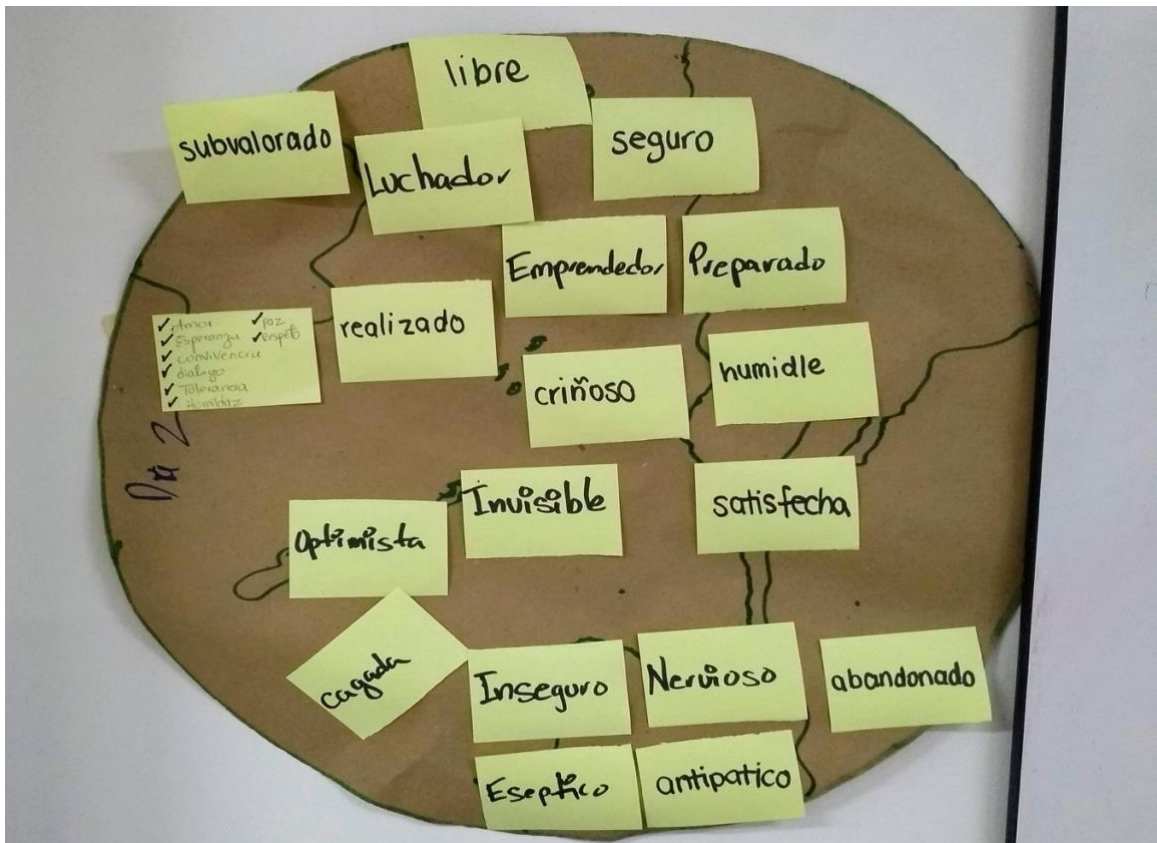 libre
subvalorado
Luchador
seguro
Emprendedor
Preparado
✓ Amor ✓ paz
✓ Esperanza ✓ respeto
✓ convivencia
✓ dialogo
✓ Tolerancia
✓ Humildaz
realizado
criñoso
humidle
Invisible
satisfecha
Optimista
cagada
Inseguro
Nervioso
abandonado
Eseptico
antipatico